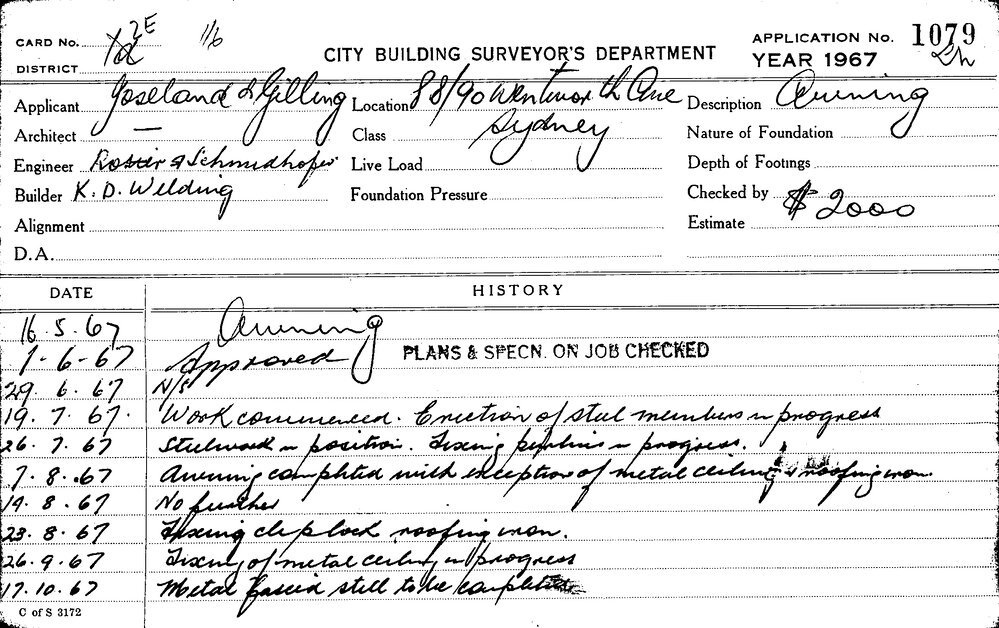 CARD No. 2E 1/6
CITY BUILDING SURVEYOR'S DEPARTMENT
APPLICATION No. 1079
DISTRICT
YEAR 1967
Applicant Joseland & Gilling Location 88/90 Wentworth Ave Description Awning
Architect — Class Sydney Nature of Foundation
Engineer & Schmidhofer Live Load Depth of Footings
Builder K. D. Welding Foundation Pressure Checked by
Alignment Estimate $2000
D.A.
DATE HISTORY
16.5.67 Awning
1-6-67 Approved PLANS & SPECN. ON JOB CHECKED
29.6.67 N/S
19.7.67. Work commenced. Erection of steel members in progress
26.7.67 Steelwork in position. Fixing purlins in progress.
7.8.67 Awning completed with exception of metal ceiling & roofing iron.
14.8.67 No further
23.8.67 Fixing clip lock roofing iron.
26.9.67 Fixing of metal ceiling in progress
17.10.67 Metal fascia still to be completed
C of S 3172